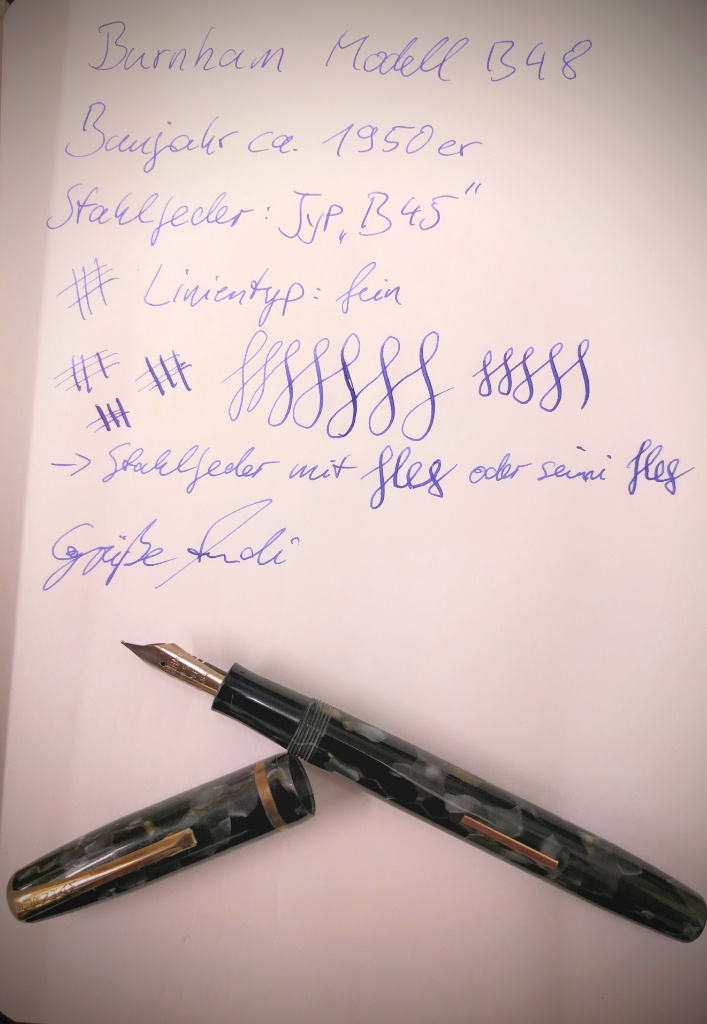 Burnham Modell B48
Baujahr ca. 1950er
Stahlfeder: Typ „B45"
Linientyp: fein
-> Stahlfeder mit flex oder semi flex
Grüße Andi